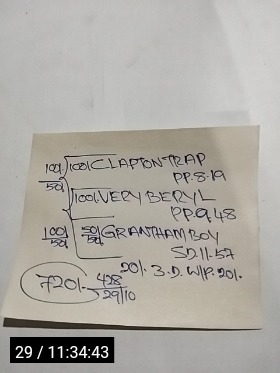 100/. 100/. CLAPTON TRAP
50/. PP.8.19
100/. VERY BERYL
PP.9.48
100/. 50/. GRANTHAM BOY
50/. 50/. SD.11.57
20/. 3.D. W/P. 20/.
720/. 428
29/10
29 / 11:34:43